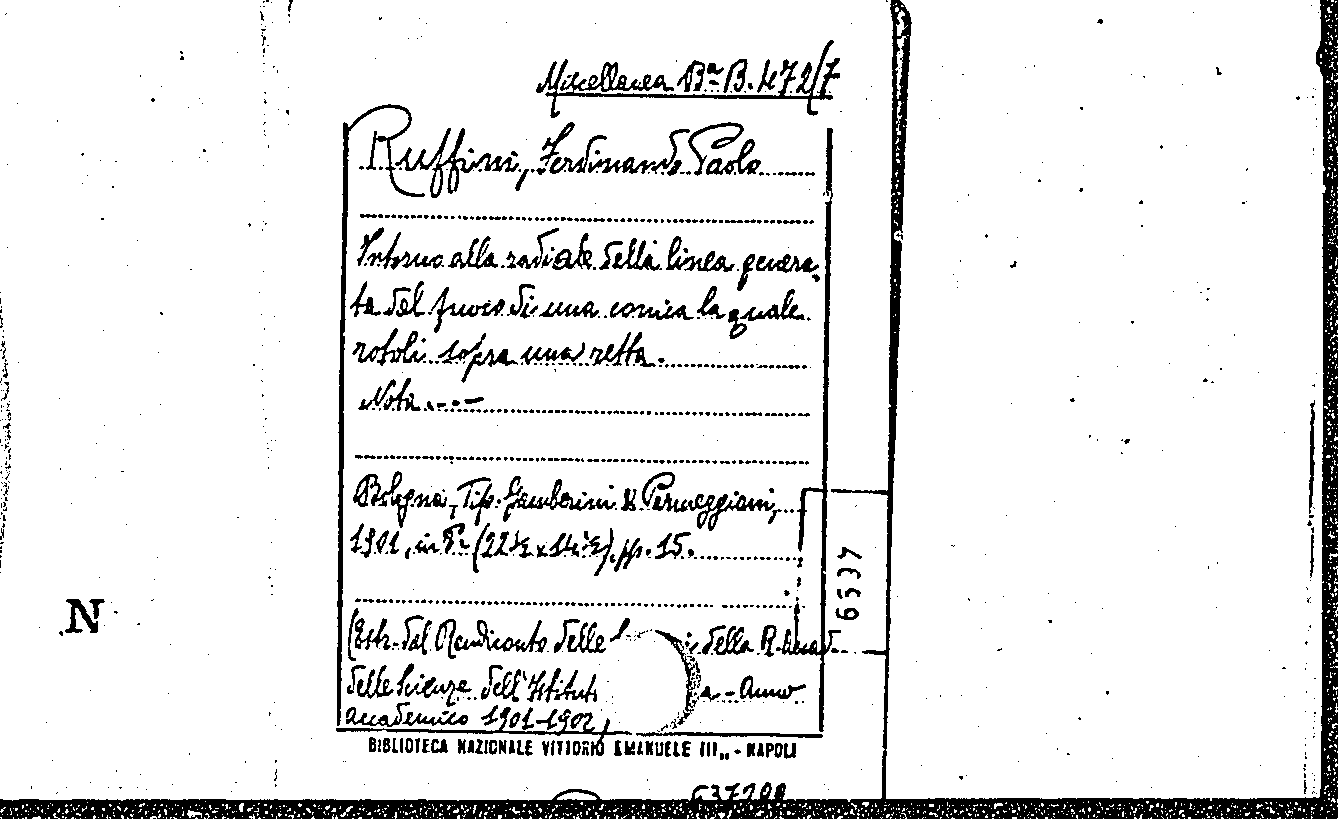 Miscellanea Bª B. 472/7
Ruffini, Ferdinando Paolo
Intorno alla radiale della linea genera-
ta dal fuoco di una conica la quale
rotoli sopra una retta.
Nota.---
Bologna, Tip. Gamberini & Parmeggiani,
1901, in 8º (22½ x 14½), pp. 15.
(Estr. dal Rendiconto delle della R. Accad.
delle Scienze dell'Istitut a - Anno
accademico 1901-1902,
BIBLIOTECA NAZIONALE VITTORIO EMANUELE III„ - NAPOLI
6537
N